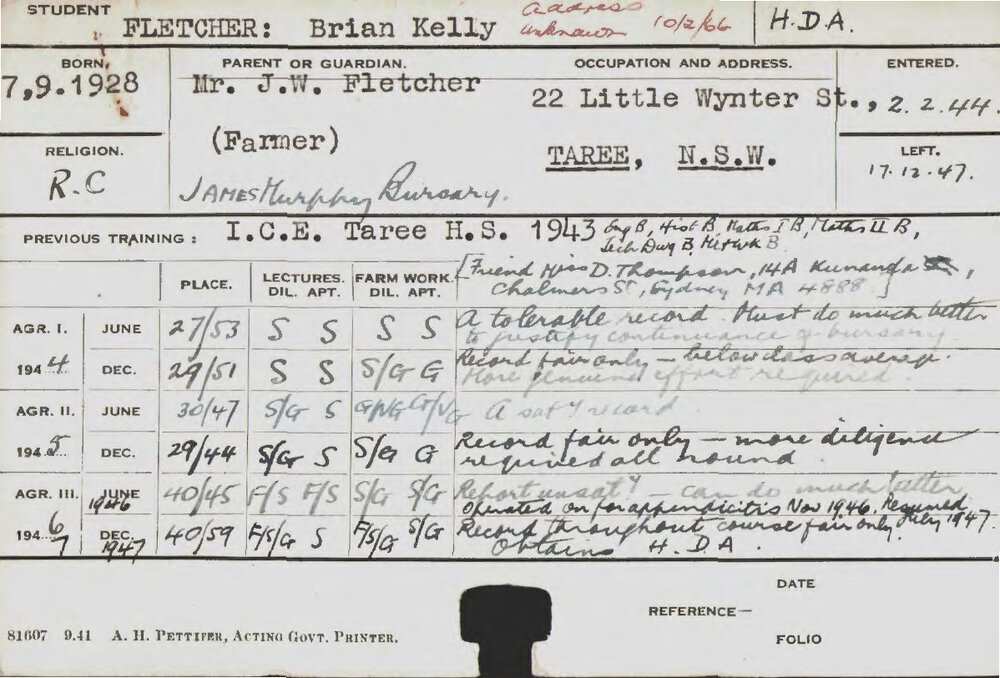 STUDENT
FLETCHER: Brian Kelly
address unknown 10/2/66
H.D.A.
BORN,
7,9.1928
PARENT OR GUARDIAN.
Mr. J.W. Fletcher
(Farmer)
OCCUPATION AND ADDRESS.
22 Little Wynter St.,
TAREE, N.S.W.
ENTERED.
2.2.44.
RELIGION.
R.C
JAMES Murphy Bursary.
LEFT.
17.12.47.
PREVIOUS TRAINING: I.C.E. Taree H.S. 1943 Eng B, Hist B, Maths I B, Maths II B,
Tech Dwg B, Metwk B.
[Friend Miss D. Thompson, 14A Kunanda ,
Chalmers St, Sydney MA 4888.]
PLACE. LECTURES. DIL. APT. FARM WORK. DIL. APT.
AGR. I. JUNE 27/53 S S S S A tolerable record. Must do much better
to justify continuance of bursary.
1944 DEC. 29/51 S S S/G G Record fair only – below class average.
More genuine effort required.
AGR. II. JUNE 30/47 S/G S G/VG G/VG A sat'y record.
1945 DEC. 29/44 S/G S S/G G Record fair only – more diligence
required all round.
AGR. III. JUNE 1946 40/45 F/S F/S S/G S/G Report unsat'y – can do much better.
Operated on for appendicitis Nov 1946. Resumed July 1947.
1946/7 DEC. 1947 40/59 F/S/G S F/S/G S/G Record throughout course fair only.
Obtains H.D.A.
DATE
REFERENCE—
FOLIO
81607 9.41 A. H. PETTIFER, ACTING GOVT. PRINTER.